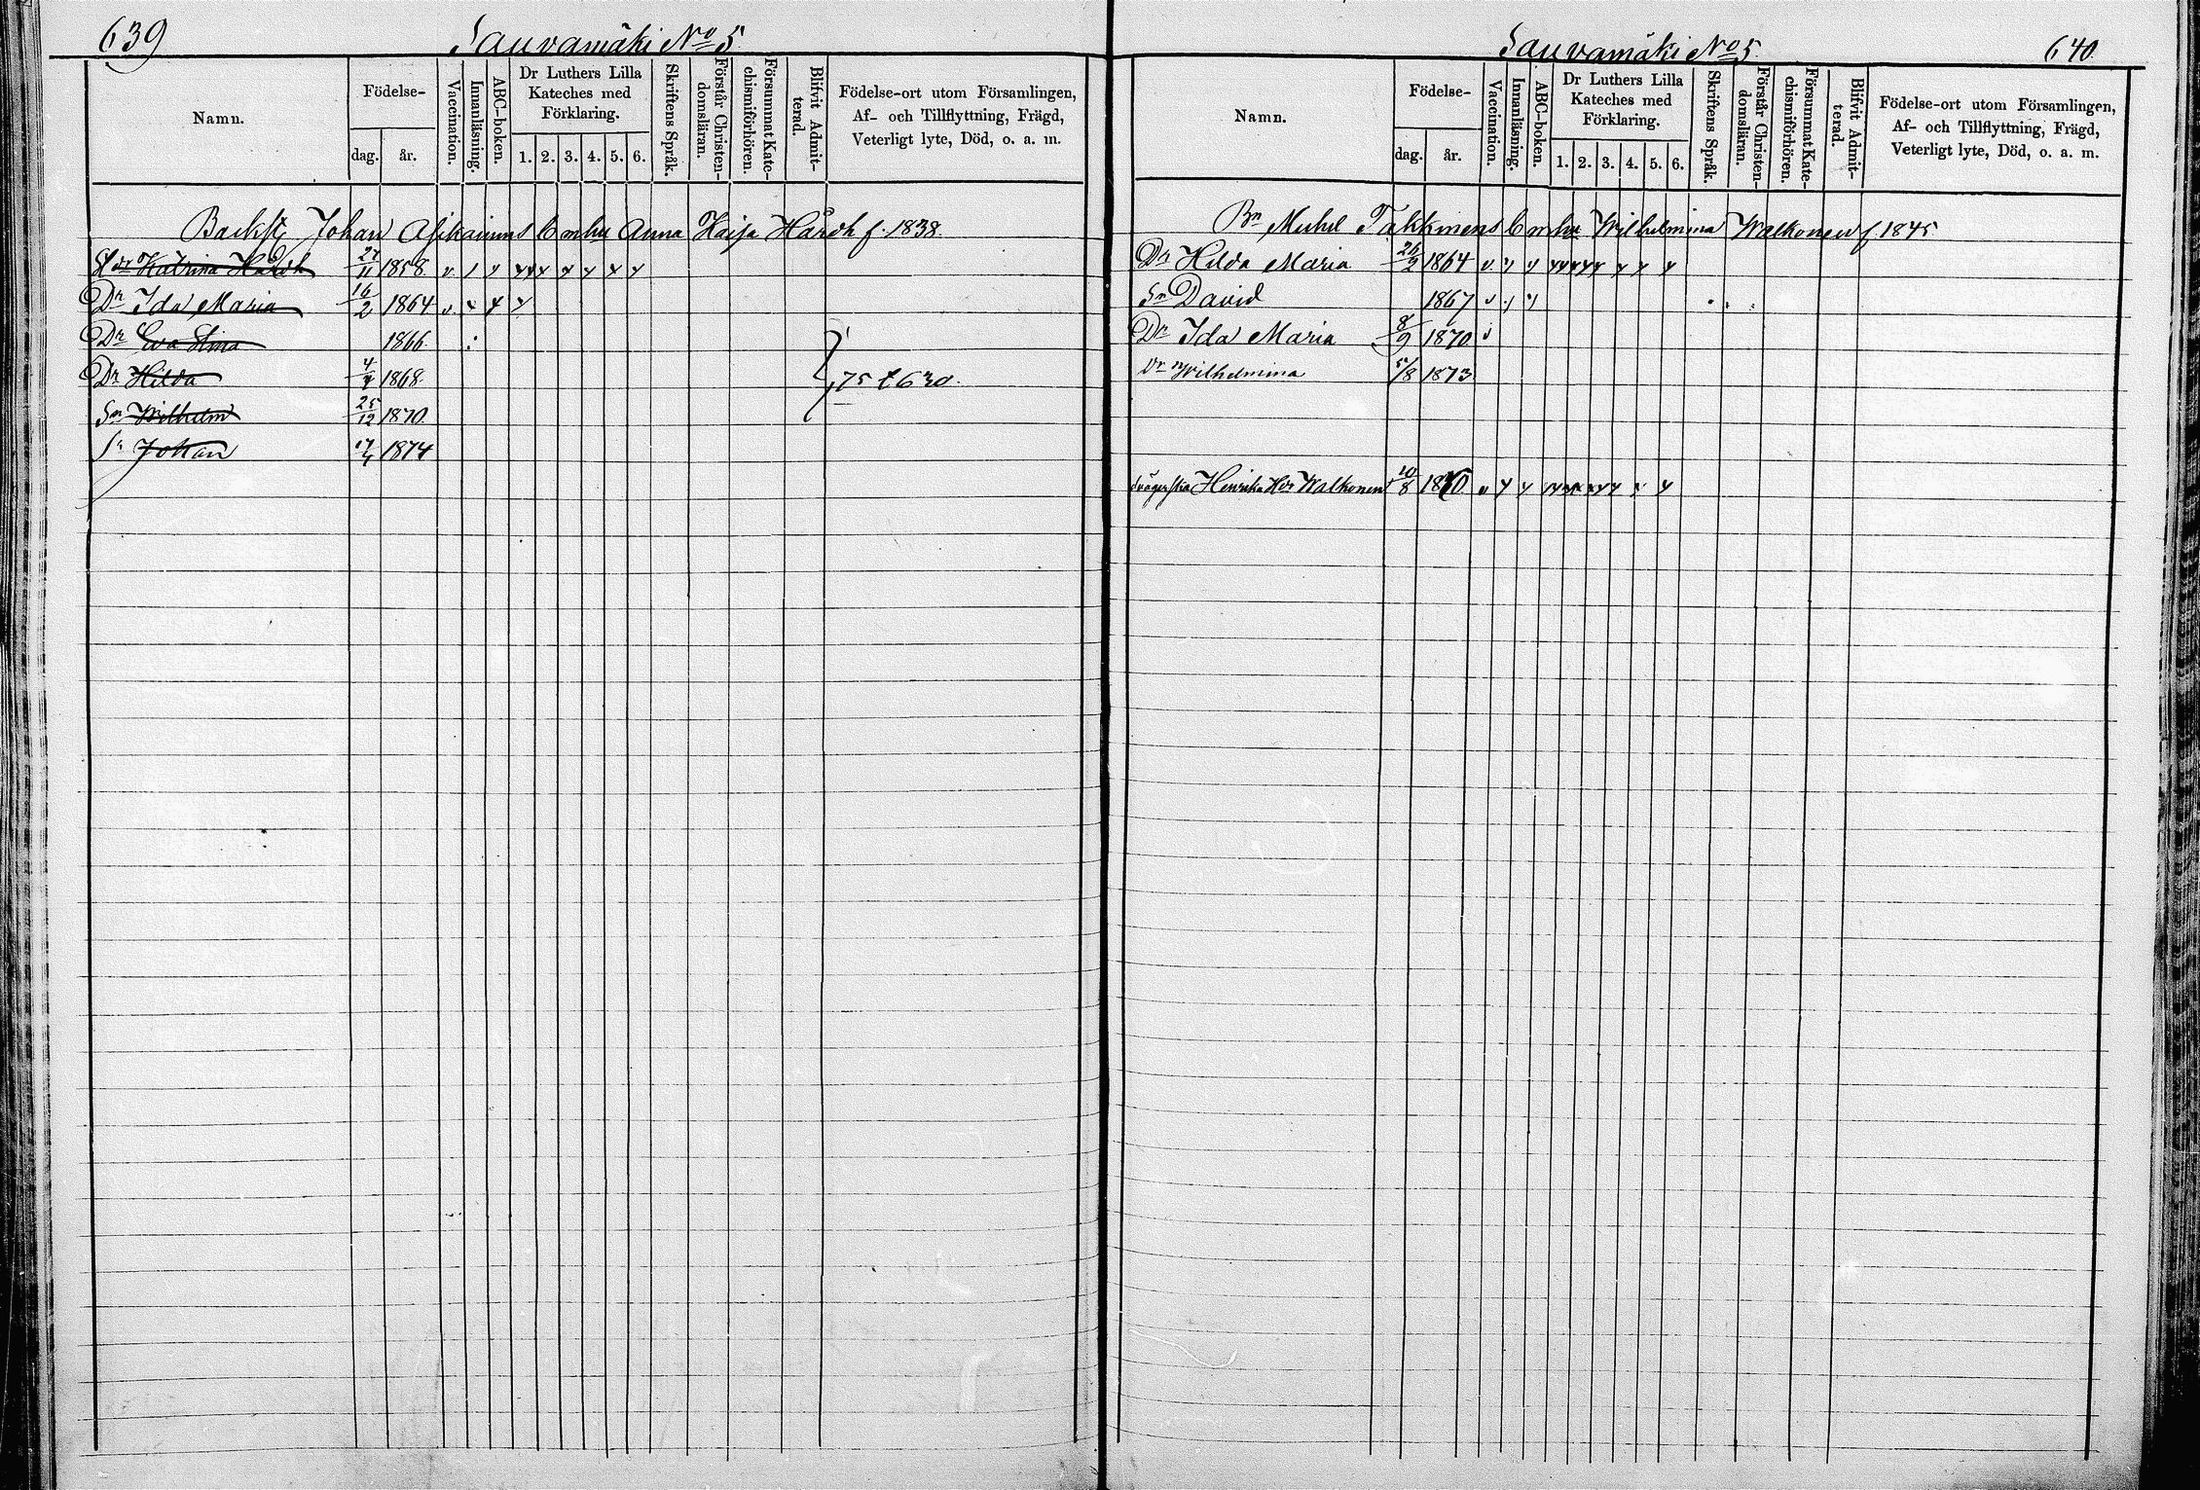 639
Sauvamäki No 5.
Namn.
Födelse-
dag.
år.
Vaccination.
Innanläsning.
ABC-boken.
Dr Luthers Lilla
Kateches med
Förklaring.
1. 2. 3. 4. 5. 6.
Skriftens Språk.
Förstår Christen-
domsläran.
Försummat Kate-
chismiförhören.
Blifvit Admit-
terad.
Födelse-ort utom Församlingen,
Af- och Tillflyttning, Frägd,
Veterligt lyte, Död, o. a. m.
Johan Asikainens Enhu Anna Kaisa Hårdh f. 1838.
Katrina Hårdh 27/11 1858 v
Dr Ida Maria 16/2 1864 v
Dr Eva Stina 1866
Dr Hilda 1868
Sn Wilhelm 25/12 1870
Johan 1874
75 t 630.
Sauvamäki No 5.
640.
Namn.
Födelse-
dag.
år.
Vaccination.
Innanläsning.
ABC-boken.
Dr Luthers Lilla
Kateches med
Förklaring.
1. 2. 3. 4. 5. 6.
Skriftens Språk.
Förstår Christen-
domsläran.
Försummat Kate-
chismiförhören.
Blifvit Admit-
terad.
Födelse-ort utom Församlingen,
Af- och Tillflyttning, Frägd,
Veterligt lyte, Död, o. a. m.
Bn Michel Takkinens Enhu Wilhelmina Walkonen f. 1845
Dr Hilda Maria 26/2 1864 v
Sn David 1867 v
Dr Ida Maria 8/9 1870 v
Dr Wilhelmina 5/8 1873
Henrika Walkonen 10/8 v